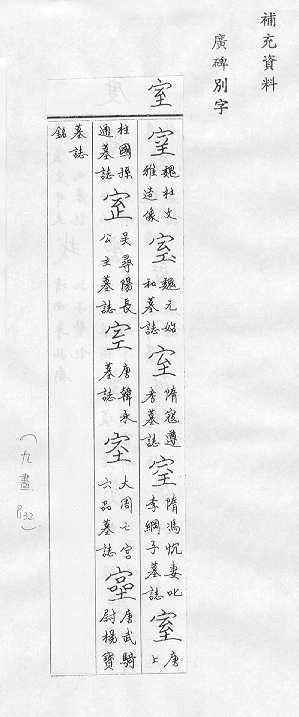 補充資料
廣碑別字
室
室 魏杜文雅造像 室 魏元始和墓誌 室 隋寇遵考墓誌 室 隋馮忱妻叱李綱子墓誌 室 唐上
柱國孫通墓誌 室 吳尋陽長公主墓誌 室 唐韓承墓誌 室 大周七宮六品墓誌 室 唐武騎尉楊寶
墓誌銘
(九畫 P132)